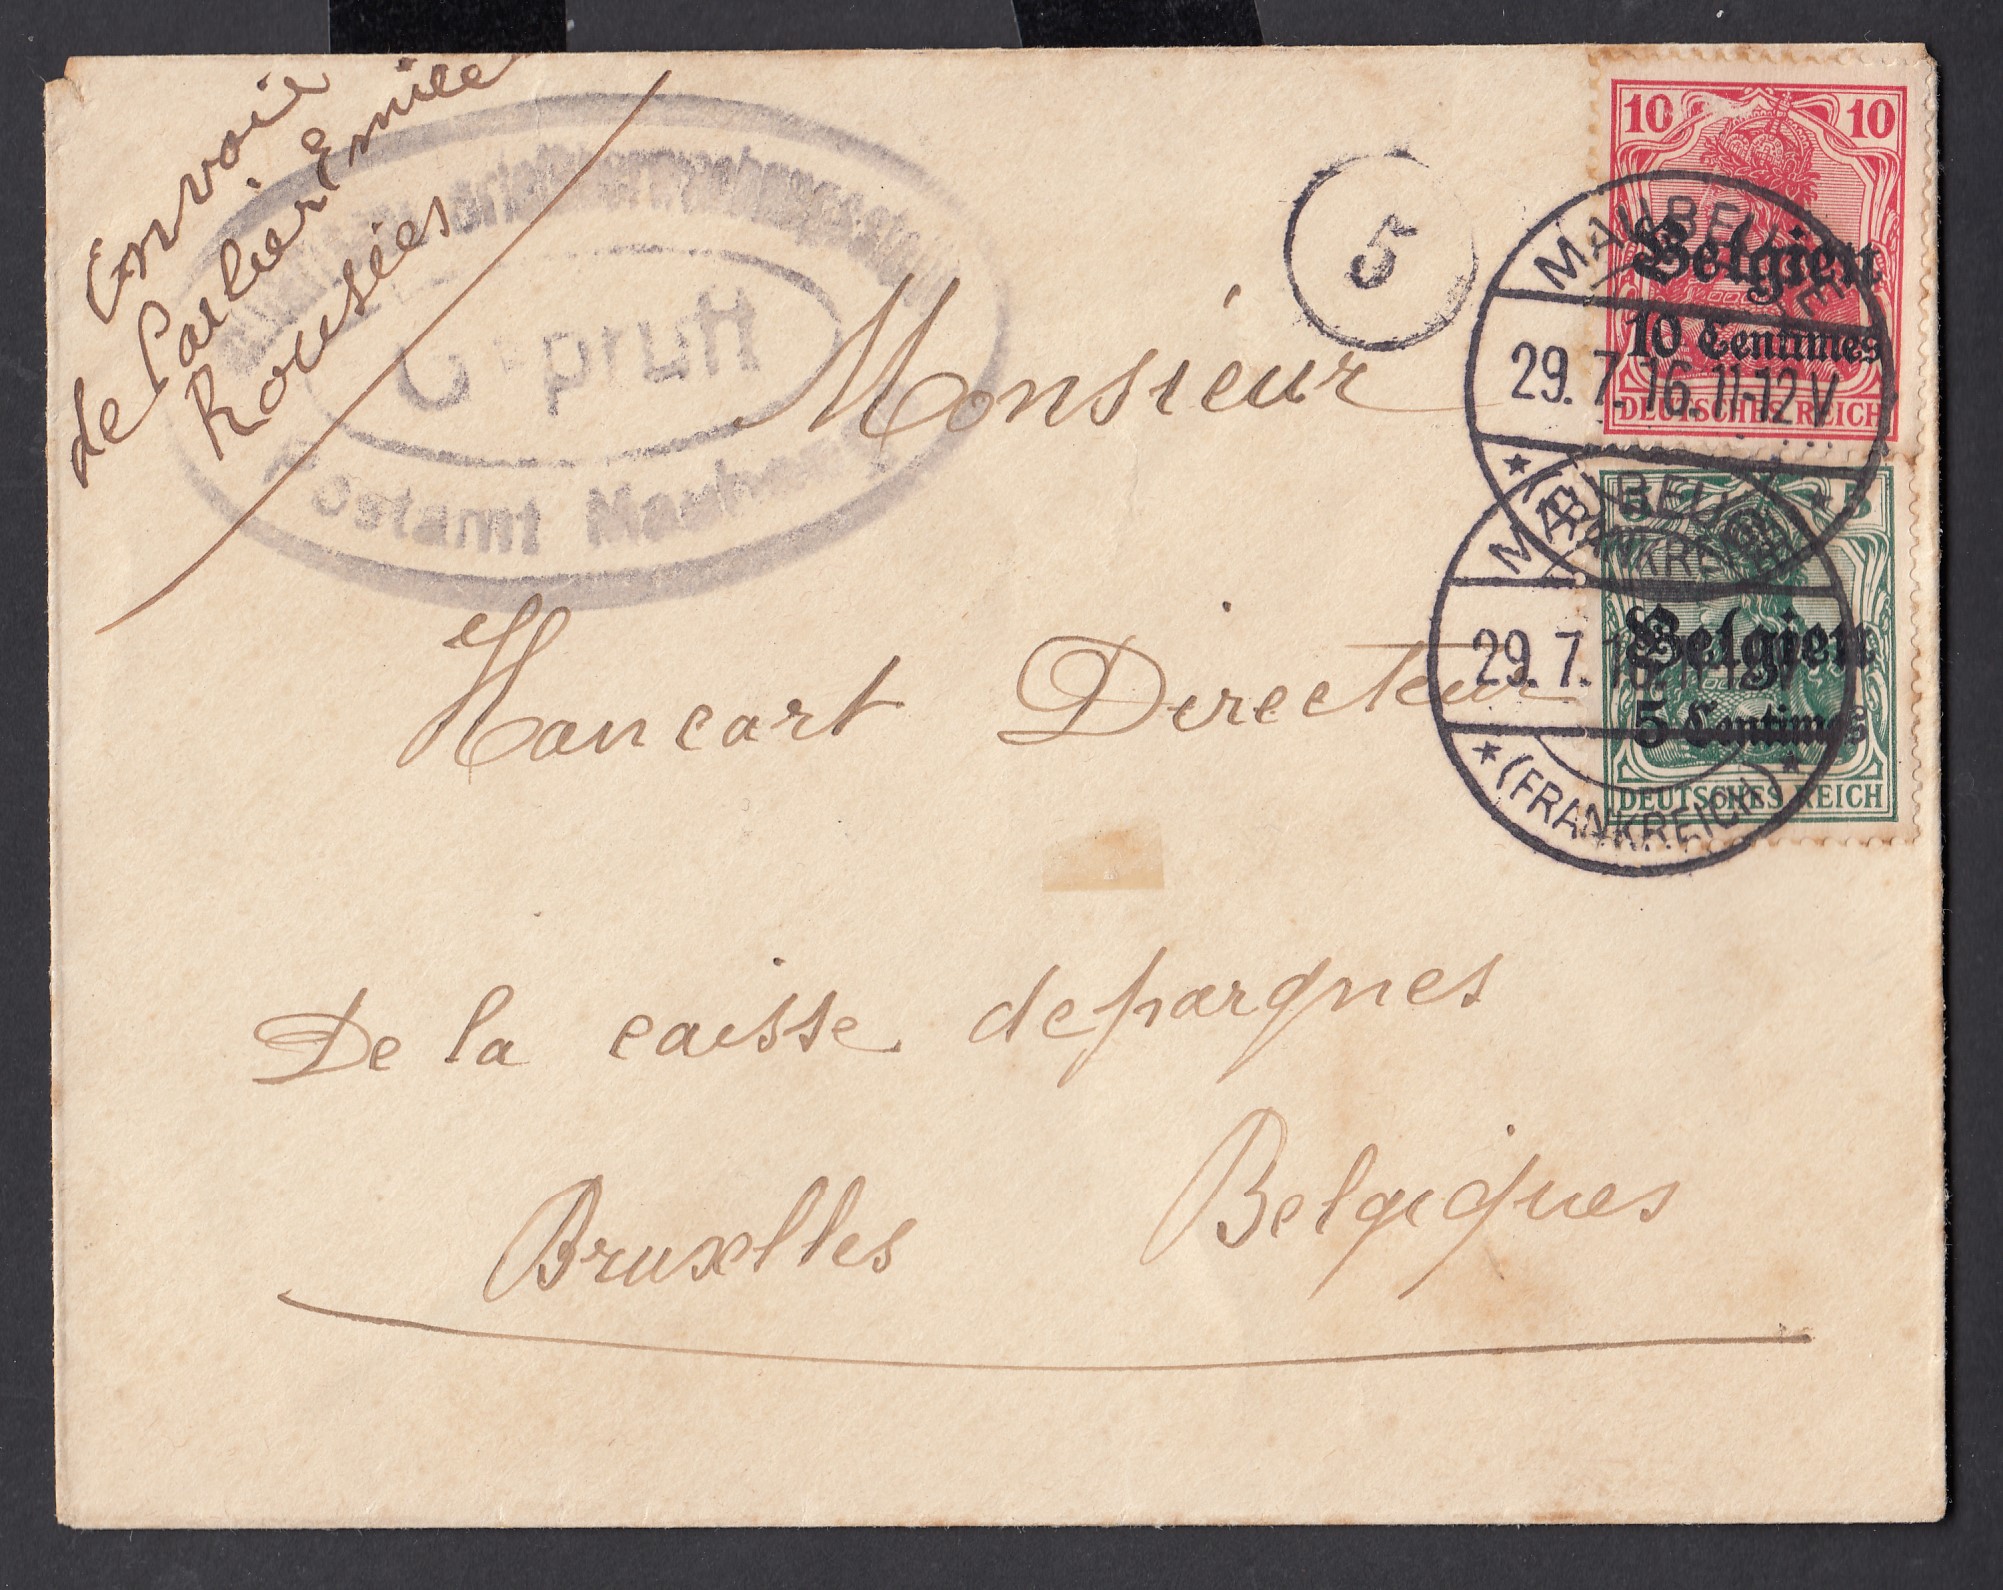 Envoie
de Parlier Emile
Rousies
Geprüft
Postamt Maubeuge
5
10 10
Belgien
10 Centimes
DEUTSCHES REICH
MAUBEUGE
29.7.16.11-12V
(FRANKREICH)
5 5
Belgien
5 Centimes
DEUTSCHES REICH
MAUBEUGE
29.7.16.11-12V
(FRANKREICH)
Monsieur
Hancart Directeur
De la caisse depargnes
Bruxelles Belgiques